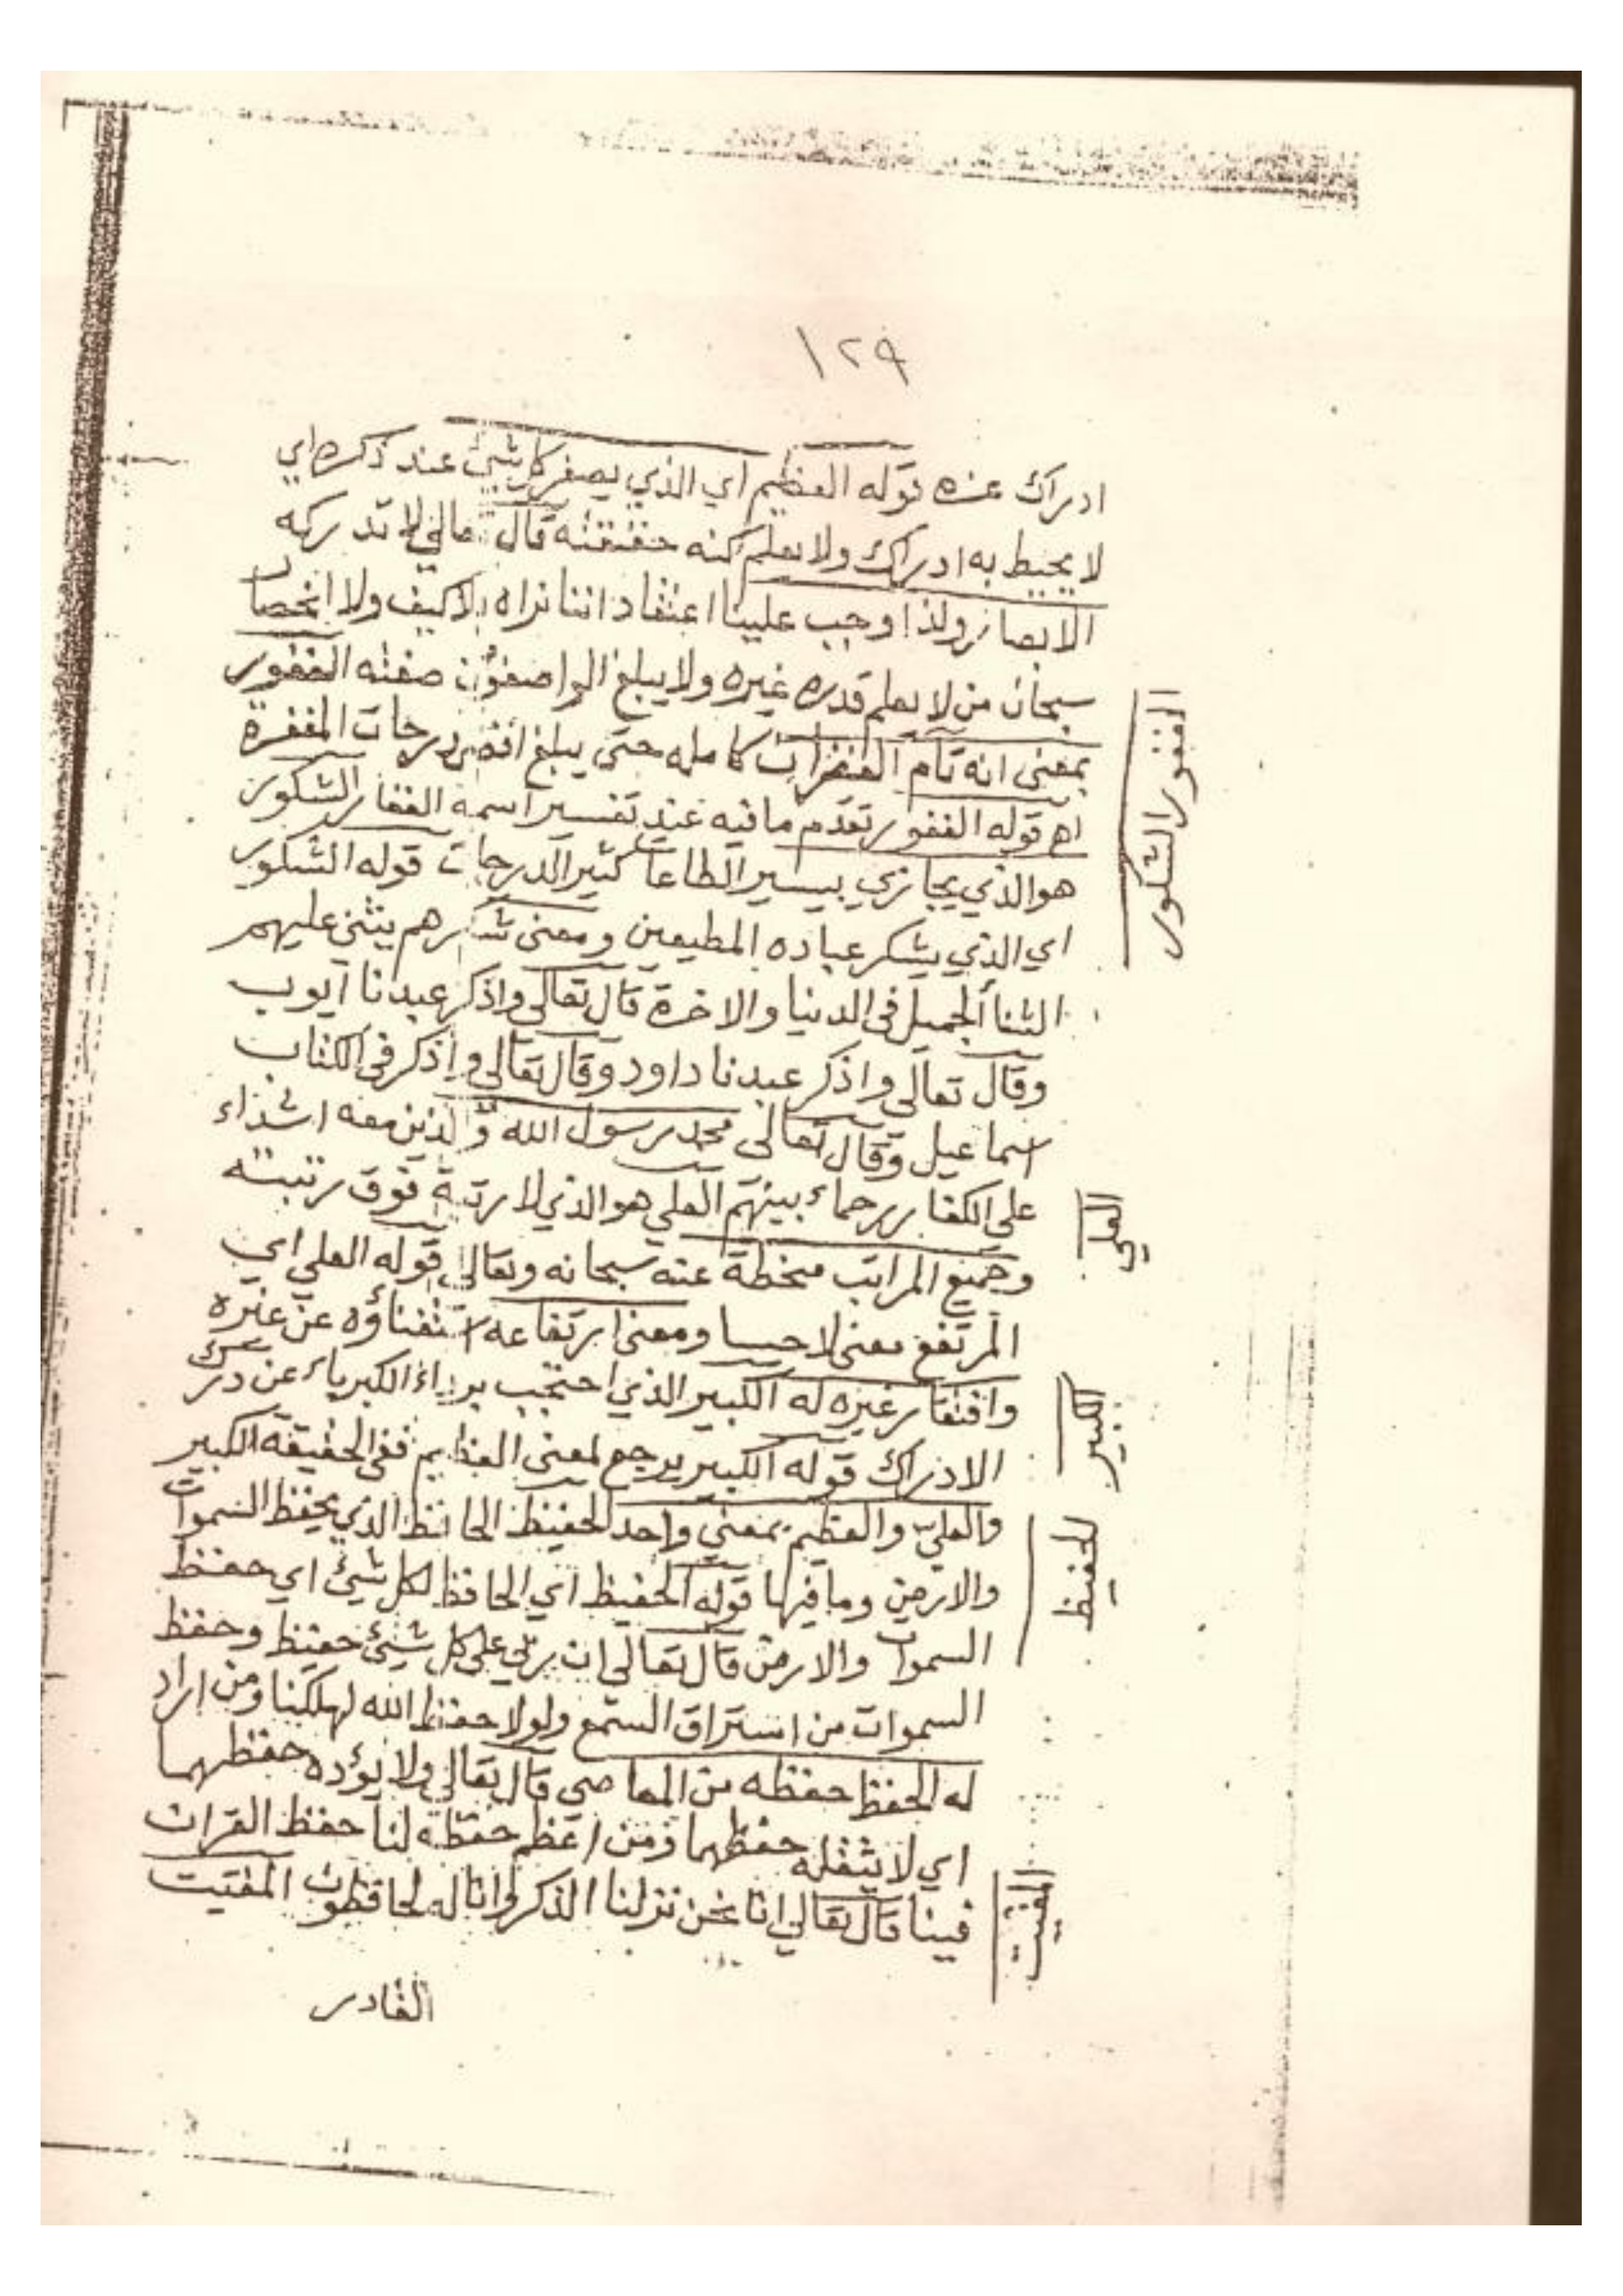 ١٢٩
ادراك غيره قوله العظيم اي الذي يصغر كل شيئ عند ذكره اي
لا يحيط به ادراك ولا يعلم كنه حقيقته قال تعالى لا تدركه
الابصار ولذا وجب علينا اعتقاد اننا نراه بلا كيف ولا انحصار
سبحان من لا يعلم قدره غيره ولا يبلغ الواصفون صفته الغفور
بمعنى انه تام الغفران كامله حتى يبلغ اقصى درجات المغفرة
اه قوله الغفور تقدم ما فيه عند تفسير اسمه الغفار الشكور
هو الذي يجازي بيسير الطاعات كثير الدرجات قوله الشكور
اي الذي يشكر عباده المطيعين ومعنى شكرهم يثني عليهم
الثنا الجميل في الدنيا والاخرة قال تعالى واذكر عبدنا ايوب
وقال تعالى واذكر عبدنا داود وقال تعالى واذكر في الكتاب
اسماعيل وقال تعالى محمد رسول الله والذين معه اشداء
على الكفار رحماء بينهم العلي هو الذي لا رتبة فوق رتبته
وجميع المراتب منحطة عنه سبحانه وتعالى قوله العلي اي
المرتفع معنى لا حسا ومعنى ارتفاعه استغناؤه عن غيره
وافتقار غيره له الكبير الذي احتجب برداء الكبرياء عن درك
الادراك قوله الكبير يرجع لمعنى العظيم ففي الحقيقة الكبير
والعلي والعظيم بمعنى واحد الحفيظ الحافظ الذي يحفظ السموات
والارضين وما فيها قوله الحفيظ اي الحافظ لكل شيئ اي حفظ
السموات والارض قال تعالى ان ربي على كل شيئ حفيظ وحفظ
السموات من استراق السمع ولولا حفظ الله لهلكنا ومن اراد
له الحفظ حفظه من المعاصي قال تعالى ولا يؤده حفظهما
اي لا يثقله حفظهما ومن اعظم حفظه لنا حفظ القران
فينا قال تعالى انا نحن نزلنا الذكر وانا له لحافظون المقيت
القادر
الغفور الشكور
العلي
الكبير
الحفيظ
المقيت